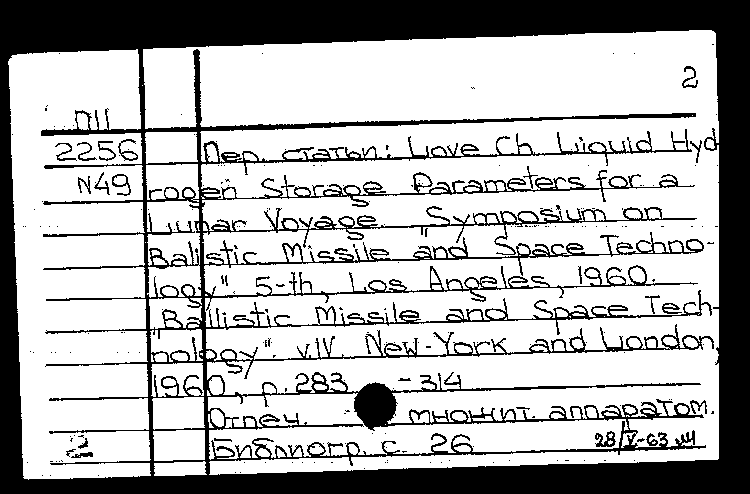 2
П11
2256 Пер. статьи: Love Ch. Liquid Hyd
N49 rogen Storage Parameters for a
Lunar Voyage „Symposium on
Balistic Missile and Space Techno-
logy". 5-th, Los Angeles, 1960.
„Ballistic Missile and Space Tech-
nology". v.IV. New-York and London,
1960, p. 283 -314
Отпеч. множит. аппаратом.
2 Библиогр. с. 26 28/V-63